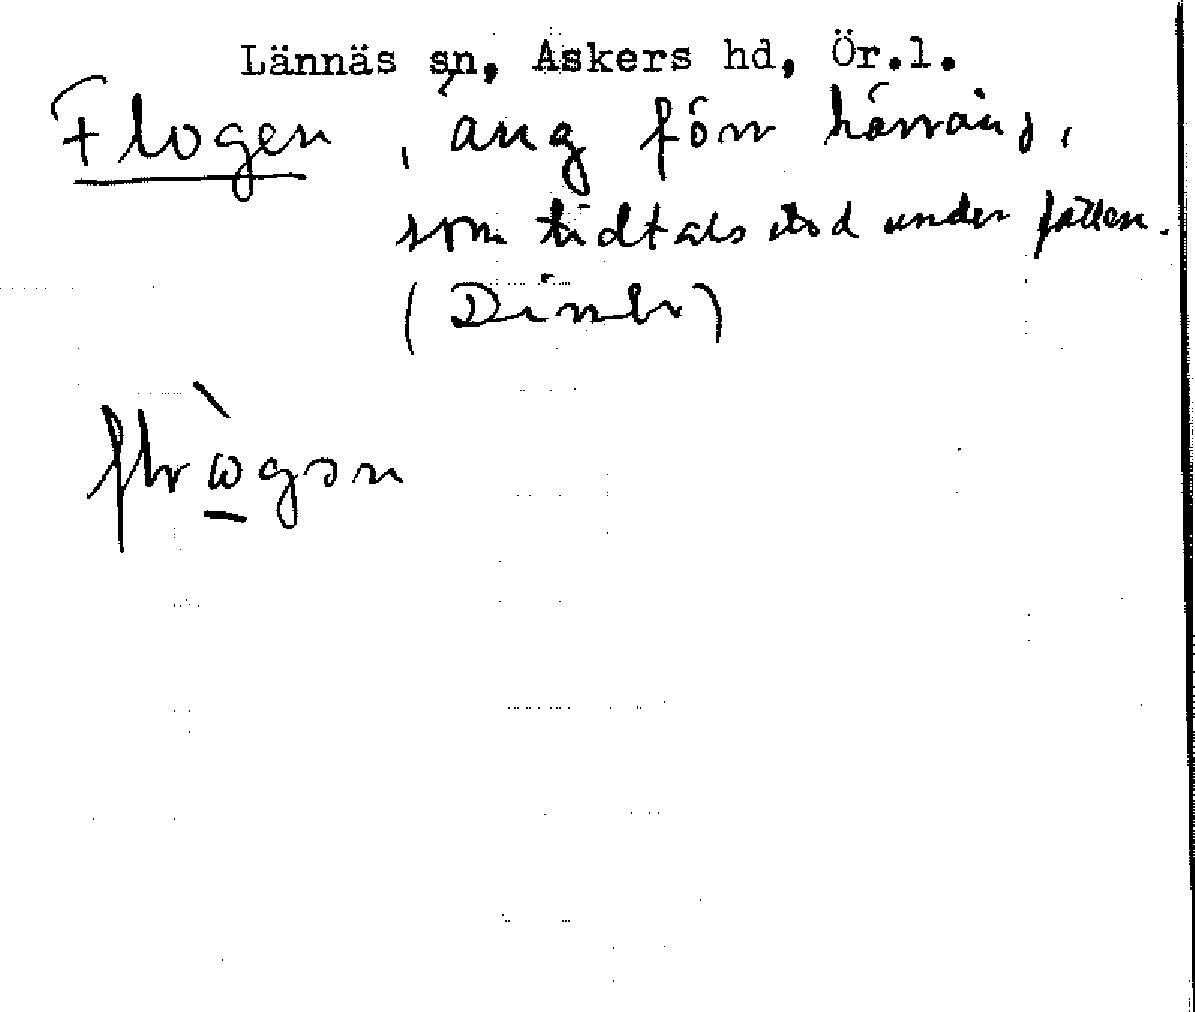 Lännäs sn, Askers hd, Ör.l.
Flogen, äng förr kärräng,
som tidtals stod under vatten.
(Dimbo)